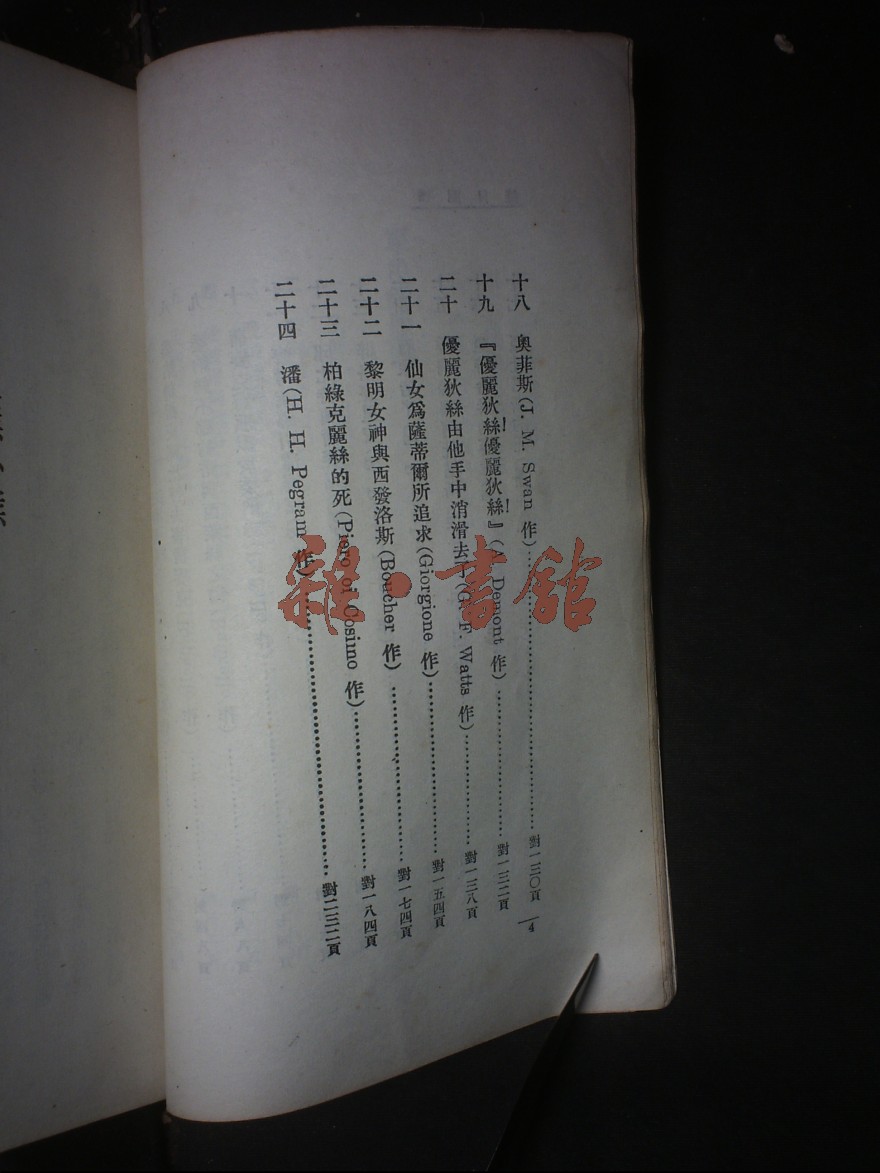 十八 奧菲斯(J. M. Swan 作)……對一三〇頁
十九 『優麗狄絲!優麗狄絲!』(A. Demont 作)……對一三二頁
二十 優麗狄絲由他手中消滑去了(G. F. Watts 作)……對一三八頁
二十一 仙女爲薩蒂爾所追求(Giorgione 作)……對一五四頁
二十二 黎明女神與西發洛斯(Boucher 作)……對一七四頁
二十三 柏綠克麗絲的死(Piero oi Cosimo 作)……對一八四頁
二十四 潘(H. H. Pegram 作)……對二三二頁
4
雜·書館